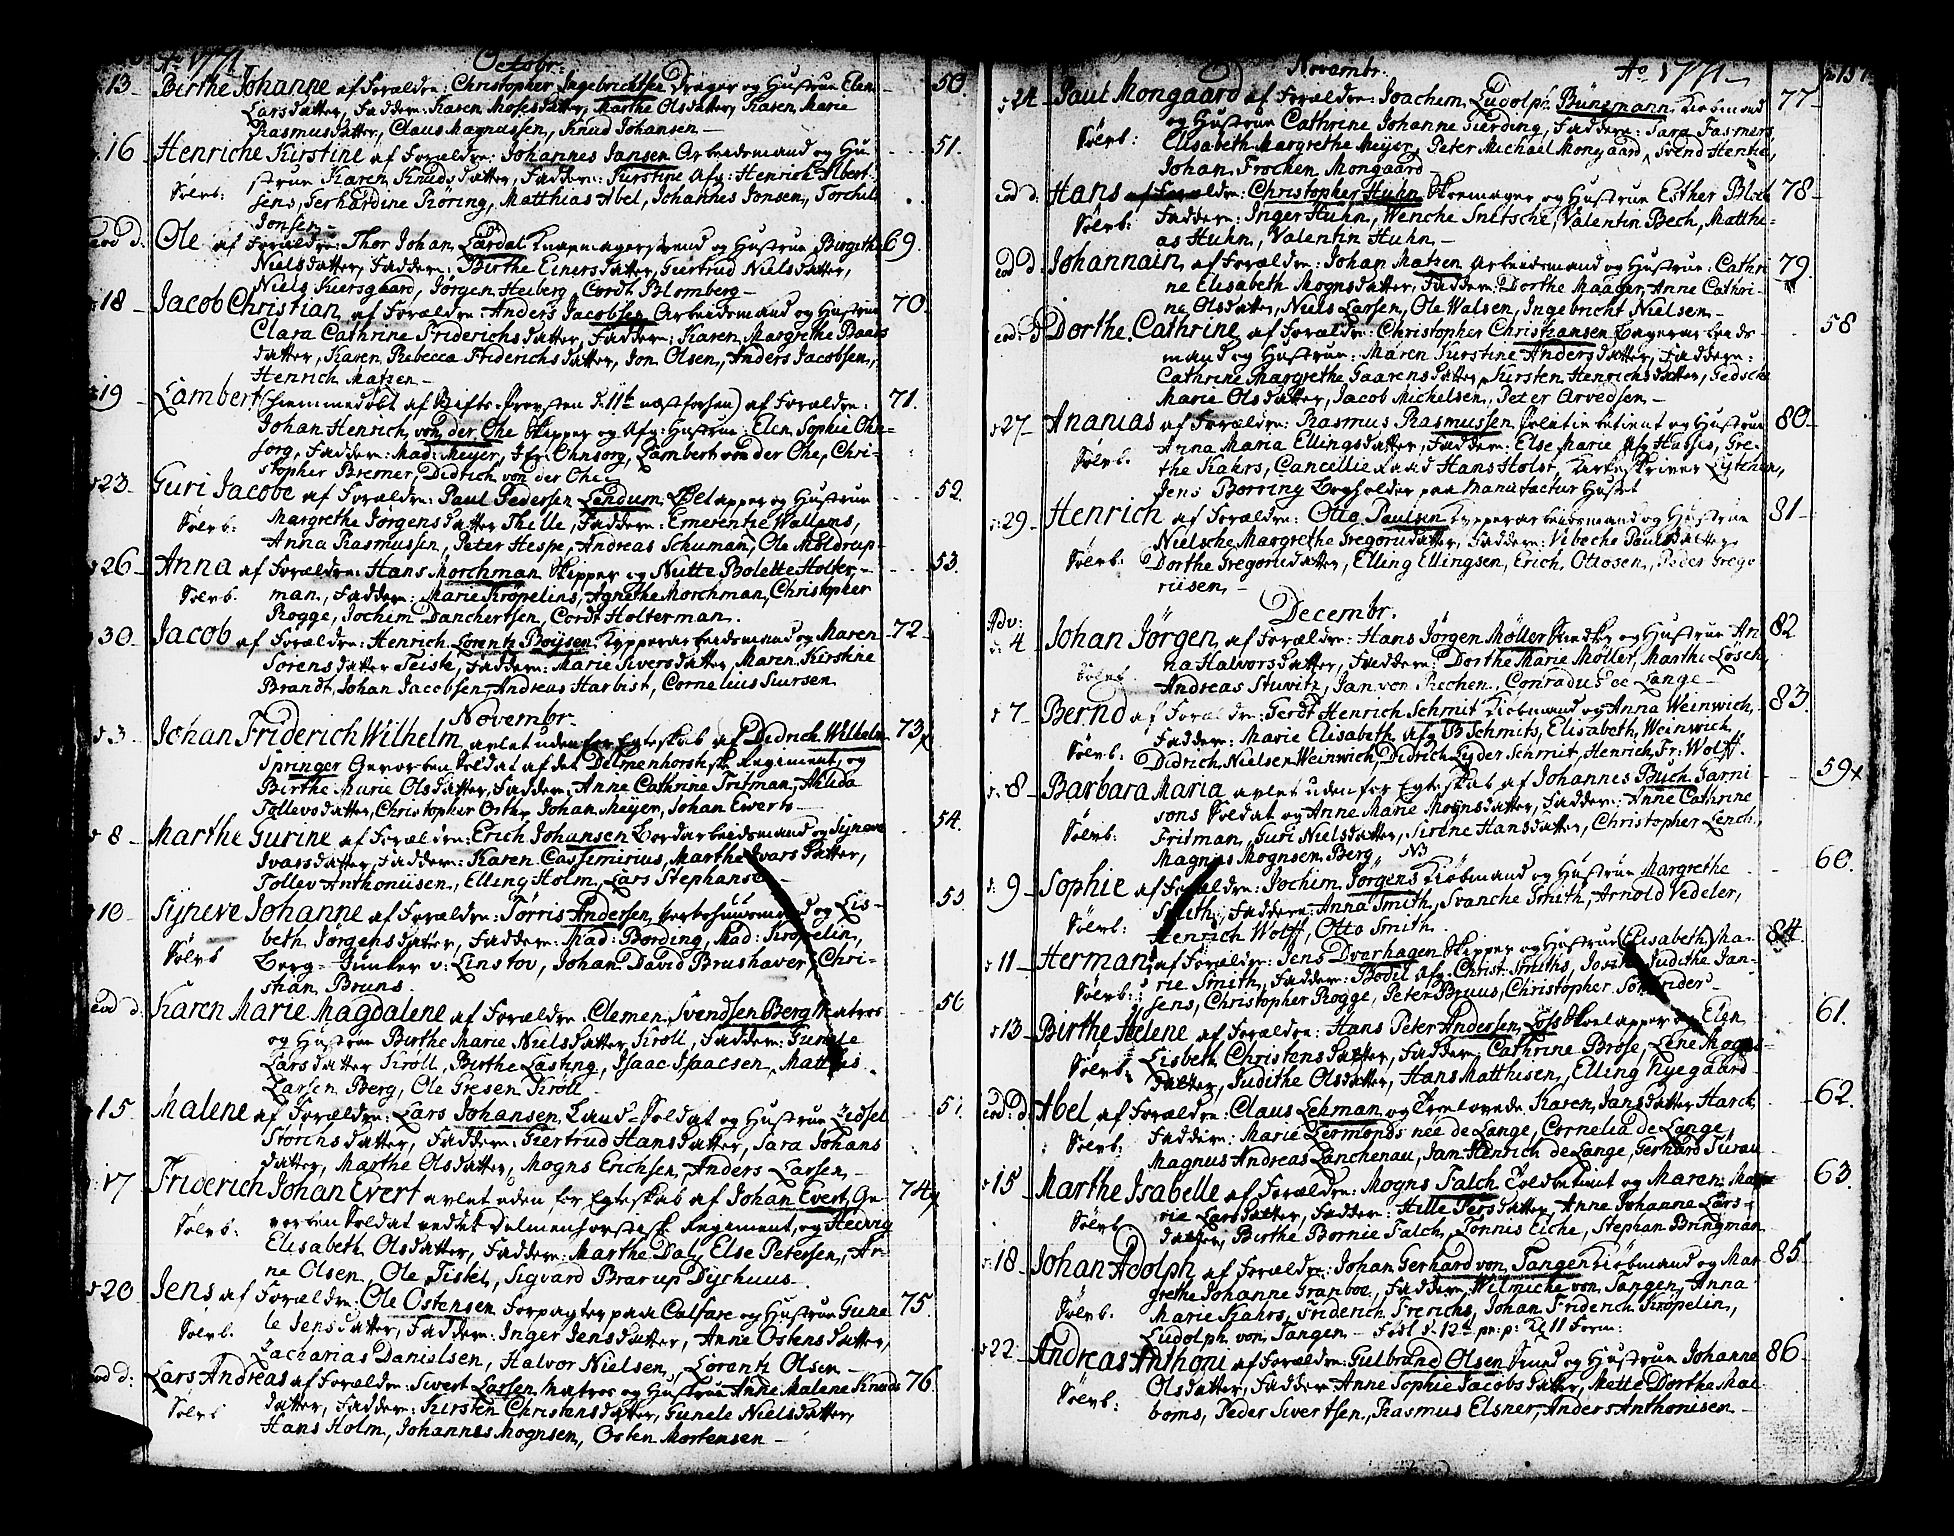 Ao 1771 Octobr.
13 Birthe Johanne af Forældre: Christopher Ingebrichtsen Drager og Hustrue Elen 50.
Larsdatter, Faddere: Karen Mosesdatter, Marthe Olsdatter, Karen Marie
Rasmusdatter, Claus Magnussen, Knud Johansen
16 Henriche Kirstine af Forældre: Johannes Jansen Arbeidsmand og Hu- 51.
Sölvb: strue Karen Knudsdatter, Faddere: Kirstine Afg: Henrich Albert-
sens, Gerhardine Röring, Matthias Abel, Johannes Jonsen, Torchil
Jonsen
eod d. Ole af Forældre: Thor Johan Lærdal Knapmagersvend og Hustrue Birgithe 69.
Nielsdatter, Faddere: Birthe Einersdatter, Giertrud Nielsdatter,
Niels Kiersgaard, Jörgen Heiberg, Cordt Blomberg
18 Jacob Christian af Forældre: Anders Jacobsen Arbeidsmand og Hustrue 70.
Clara Cathrine Friderichsdatter, Faddere: Karen Margrethe Baars
datter, Karen Rebecca Friderichsdatter, Jon Olsen, Anders Jacobsen,
Henrich Matsen
19 Lambert (hiemmedöbt af Stifts-Provsten d. 11te næstforhen) af Forældre: 71.
Johan Henrich von der Ohe Skipper og Afg: Hustrue: Elen Sophie Ohn-
sorg, Faddere: Mad: Meyer, Jfr. Ohnsorg, Lambert von der Ohe, Chri-
stopher Bremer, Didrich von der Ohe
23 Guri Jacobe af Forældre: Paul Pedersen Lendum og Hustrue 52.
Sölvb: Margrethe Jörgensdatter Thelle, Faddere: Emerentie Wallems,
Anna Rasmussen, Peter Hespe, Andreas Schuman, Ole Moldrup
26 Anna af Forældre: Hans Morchman Skipper og Nutte Bolette Holter- 53.
Sölvb. man, Faddere: Marie Kröpelins, Agnethe Morchman, Christopher
Rogge, Jochim Danchertsen, Cordt Holterman.
30 Jacob af Forældre: Henrich Lorentz Boysen Kypperarbeidsmand og Maren 72
Sörensdatter Teiste, Faddere: Marie Siversdatter, Maren Kirstine
Brandt, Johan Jacobsen, Andreas Harbist, Cornelius Siursen
Novembr.
3 Johan Friderich Wilhelm avlet uden for Egteskab af Didrich Wilhelm 73
Springer Gevorben Soldat af det Delmenhorstiske Regiment, og
Birthe Marie Olsdatter, Faddere: Anne Cathrine Fritman, Ahlida
Tollevsdatter, Christopher Oster, Johan Meyer, Johan Everts
8 Marthe Gurine af Forældre: Erich Johansen Bordarbeidsmand og Syneve 54.
Ivarsdatter, Faddere: Karen Cassimirius, Marthe Ivarsdatter,
Tollev Anthoniisen, Elling Holm, Lars Stephansen
10 Syneve Johanne af Forældre: Törris Andersen og Lis- 55.
Sölvb beth Jörgensdatter, Faddere: Mad: Bording, Mad: Kröpelin,
Berg-Junker v: Linstov, Johan David Brushaver, Chri-
stian Bruns.
eod d. Karen Marie Magdalene af Forældre: Clemen Svendsen Berg Matros 56
og Hustrue Birthe Marie Nielsdatter Kröll, Faddere: Gunele
Larsdatter Kröll, Birthe Lasting, Isaac Isaacsen, Matthis
Larsen Berg, Ole Gresen Kröll
15 Malene af Forældre: Lars Johansen Land-Soldat og Hustrue Zidsel 57.
Storchsdatter, Faddere: Giertrud Hansdatter, Sara Johans
datter, Marthe Olsdatter, Mogns Erichsen, Anders Larsen
17 Friderich Johan Evert avlet uden for Egteskab af Johan Evert Ge- 74
Sölvb: vorben Soldat ved det Delmenhorstiske Regiment, og Hedvig
Elisabeth Olsdatter, Faddere: Marthe Dal, Else Petersen, Ar-
ne Olsen, Ole Tistel, Sigvard Brarup Dychuus
20 Jens af Forældre: Ole Ostensen Forpagter paa Calfare og Hustrue Gune 75
Sölvb. le Jensdatter, Faddere: Inger Jensdatter, Anne Ostensdatter,
Zacharias Danielsen, Halvor Nielsen, Lorentz Olsen
eod d: Lars Andreas af Forældre: Sivert Larsen Matros og Hustrue Anne Malene Knuds 76
Sölvb datter, Faddere: Kirsten Christensdatter, Gunele Nielsdatter,
Hans Holm, Johannes Mognsen, Osten Mortensen
Novembr. Ao 1771 157
24 Paul Mongaard af Forældre: Joachim Ludolph Bünsmann Kiöbmand 77
og Hustrue Cathrine Johanne Fierding, Faddere: Sara Fasmers
Sölvb: Elisabeth Margrethe Meyer, Peter Michael Mongaard, Svend Hentze,
Johan Frochen Mongaard
eod d. Hans af Forældre: Christopher Huhn Skomager og Hustrue Esther Bloch 78
Sölvb: Faddere: Inger Huhn, Wenche Snitsche, Valentin Bech, Matthe-
as Huhn, Valentin Huhn
eod d. Johannain af Forældre: Johan Matsen Arbeidsmand og Hustrue: Cathri 79.
ne Elisabeth Mognsdatter, Faddere: Dorthe Maager, Anne Cathri-
ne Olsdatter, Niels Larsen, Ole Walsen, Ingebricht Nielsen
eod: d Dorthe Cathrine af Forældre: Christopher Christiansen Byearbeids- 58
mand og Hustrue: Maren Kirstine Andersdatter, Faddere:
Cathrine Margrethe Gaarensdatter, Kirsten Henrichsdatter, Gedsche
Marie Olsdatter, Jacob Michelsen, Peter Arvedsen
27 Ananias af Forældre: Rasmus Rasmussen Politie betient og Hustrue 80
Anna Maria Ellingsdatter, Faddere: Else Marie Afg Hahses, Gre-
Sölvb. the Kahrs, Cancellie Raad Hans Holst, Kirkeskriver Lytchen,
Jens Borring Bogholder paa Manufactur Huset
29 Henrich af Forældre: Otto Paulsen Kypperarbeidsmand og Hustrue 81
Nielsche Margrethe Gregoriidatter, Faddere: Vibeche Paulsdatter
Sölvb: Dorthe Gregoriidatter, Elling Ellingsen, Erich Ottosen, Peder Grego
riisen
Decembr.
Adv:
4 Johan Jörgen af Forældre: Hans Jörgen Möller og Hustrue An- 82
Sölvb. na Halvorsdatter, Faddere: Dorthe Marie Möller, Marthe Losch,
Andreas Stuvitz, Jan von Rechen, Conradus de Lange
7 Bernd af Forældre: Gerdt Henrich Schmit Kiöbmand og Anna Weinwich, 83
Faddere: Marie Elisabeth Afg B Schmits, Elisabeth Weinwich,
Sölvb: Didrich Nielsen Weinwich, Didrich Lyder Schmit, Henrich Fr: Wolff.
8 Barbara Maria avlet uden for Egteskab af Johannes Buch Garni 59
sons Soldat og Anne Marie Mognsdatter, Faddere: Anne Cathrine
Sölvb: Fritman, Guri Nielsdatter, Sirene Hansdatter, Christopher Lench,
Magnus Mognsen Berg NB
9 Sophie af Forældre: Jochim Jörgens Kiöbmand og Hustrue Margrethe 60.
Smith, Faddere: Anna Smith, Svanche Smith, Arnold Vedeler,
Sölvb: Henrich Wolff, Otto Smith
11 Herman af Forældre: Jens Dverhagen Skipper og Hustrue (Elisabeth) Ma- 84
rie Smith, Faddere: Bodil Afg. Christ. Smiths, Judithe Jan-
Sölvb: sens, Christopher Rogge, Peter Bruus, Christopher
13 Birthe Helene af Forældre: Hans Peter Andersen Löss og Elen 61.
Sölvb: Lisbeth Christensdatter, Faddere: Cathrine Brose, Lene Mogns-
datter, Judithe Olsdatter, Hans Matthisen, Elling Nyegaard
eod d. Abel, af Forældre: Claus Lehman og Trolovede Karen Jansdatter Harck 62.
Sölvb: Faddere: Marie Lermonds née de Lange, Cornelia de Lange,
Magnus Andreas Lanchenau, Jan Henrich de Lange, Gerhard Türau
15 Marthe Isabelle af Forældre: Mogns Falch Toldbetient og Maren Ma- 63.
Sölvb rie Larsdatter, Faddere: Hille Persdatter, Anne Johanne Lars-
datter, Birthe Bornie Falch, Tönnis Eiche, Stephan Bringman
18 Johan Adolph af Forældre: Johan Gerhard von Tangen Kiöbmand og Mar 85.
grethe Johanne Granboe, Faddere: Wilmiche von Tangen, Anna
Sölvb. Marie Kahrs, Friderich Frerichs, Johan Friderich Kröpelin,
Ludolph von Tangen. Födt d. 12te
22 Andreas Anthoni af Forældre: Gulbrand Olsen Smed og Hustrue Johanne 86
Sölvb: Olsdatter, Faddere: Anne Sophie Jacobsdatter, Mette Dorthe Mal
boms, Peder Sivertsen, Rasmus Elsner, Anders Anthonisen